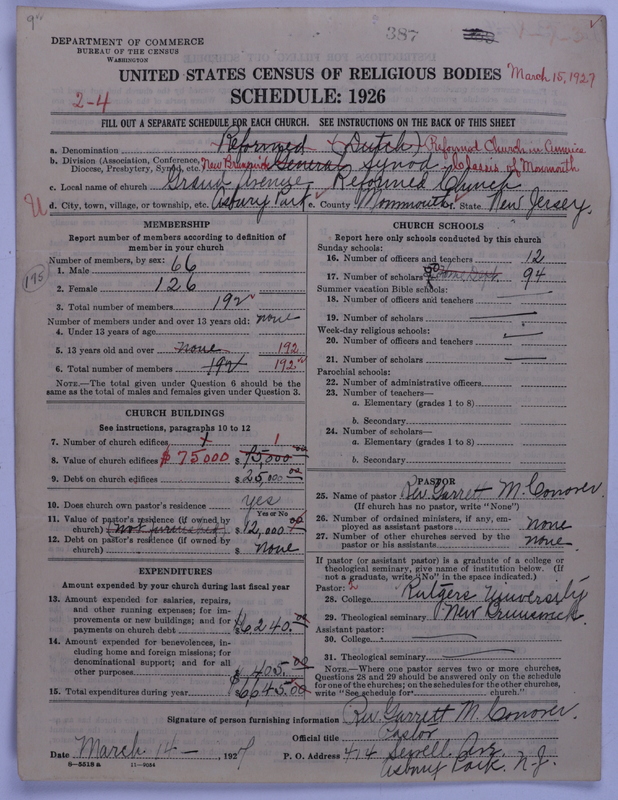 387
DEPARTMENT OF COMMERCE
BUREAU OF THE CENSUS
WASHINGTON
UNITED STATES CENSUS OF RELIGIOUS BODIES
March 15, 1927
2-4
SCHEDULE: 1926
FILL OUT A SEPARATE SCHEDULE FOR EACH CHURCH. SEE INSTRUCTIONS ON THE BACK OF THIS SHEET
a. Denomination Reformed (Dutch) Reformed Church in America
b. Division (Association, Conference, Diocese, Presbytery, Synod, etc.) New Brunswick General Synod Classis of Monmouth
c. Local name of church Grand Avenue Reformed Church
d. City, town, village, or township, etc. Asbury Park e. County Monmouth f. State New Jersey.
MEMBERSHIP
Report number of members according to definition of
member in your church
Number of members, by sex:
1. Male 66
195
2. Female 126
3. Total number of members 192
Number of members under and over 13 years old:
4. Under 13 years of age none
5. 13 years old and over none 192
6. Total number of members 192 192
NOTE.—The total given under Question 6 should be the
same as the total of males and females given under Question 3.
CHURCH BUILDINGS
See instructions, paragraphs 10 to 12
7. Number of church edifices 1 1
8. Value of church edifices $75000 $ 75,000 00
9. Debt on church edifices $ 25,000 00
10. Does church own pastor's residence yes
Yes or No
11. Value of pastor's residence (if owned by
church) (not furnished) $ 12,000 00
12. Debt on pastor's residence (if owned by
church) $ none
EXPENDITURES
Amount expended by your church during last fiscal year
13. Amount expended for salaries, repairs,
and other running expenses; for im-
provements or new buildings; and for
payments on church debt $ 6240.00
14. Amount expended for benevolences, in-
cluding home and foreign missions; for
denominational support; and for all
other purposes $ 405.00
15. Total expenditures during year $ 6645.00
CHURCH SCHOOLS
Report here only schools conducted by this church
Sunday schools:
16. Number of officers and teachers 12
17. Number of scholars Home Dept. 94
Summer vacation Bible schools:
18. Number of officers and teachers
19. Number of scholars
Week-day religious schools:
20. Number of officers and teachers
21. Number of scholars
Parochial schools:
22. Number of administrative officers
23. Number of teachers—
a. Elementary (grades 1 to 8)
b. Secondary
24. Number of scholars—
a. Elementary (grades 1 to 8)
b. Secondary
PASTOR
25. Name of pastor Rev. Garrett M. Conover.
(If church has no pastor, write "None")
26. Number of ordained ministers, if any, em-
ployed as assistant pastors none
27. Number of other churches served by the
pastor or his assistants none.
If pastor (or assistant pastor) is a graduate of a college or
theological seminary, give name of institution below. (If
not a graduate, write "No" in the space indicated.)
Pastor:
28. College Rutgers University
29. Theological seminary New Brunswick.
Assistant pastor:
30. College
31. Theological seminary
NOTE.—Where one pastor serves two or more churches,
Questions 28 and 29 should be answered only on the schedule
for one of the churches; on the schedules for the other churches,
write "See schedule for church."
Signature of person furnishing information Rev. Garrett M. Conover.
Official title Pastor
Date March 14 —, 1927
P. O. Address 414 Sewell Ave.
Asbury Park. N.J.
8—5518 a 11—9084